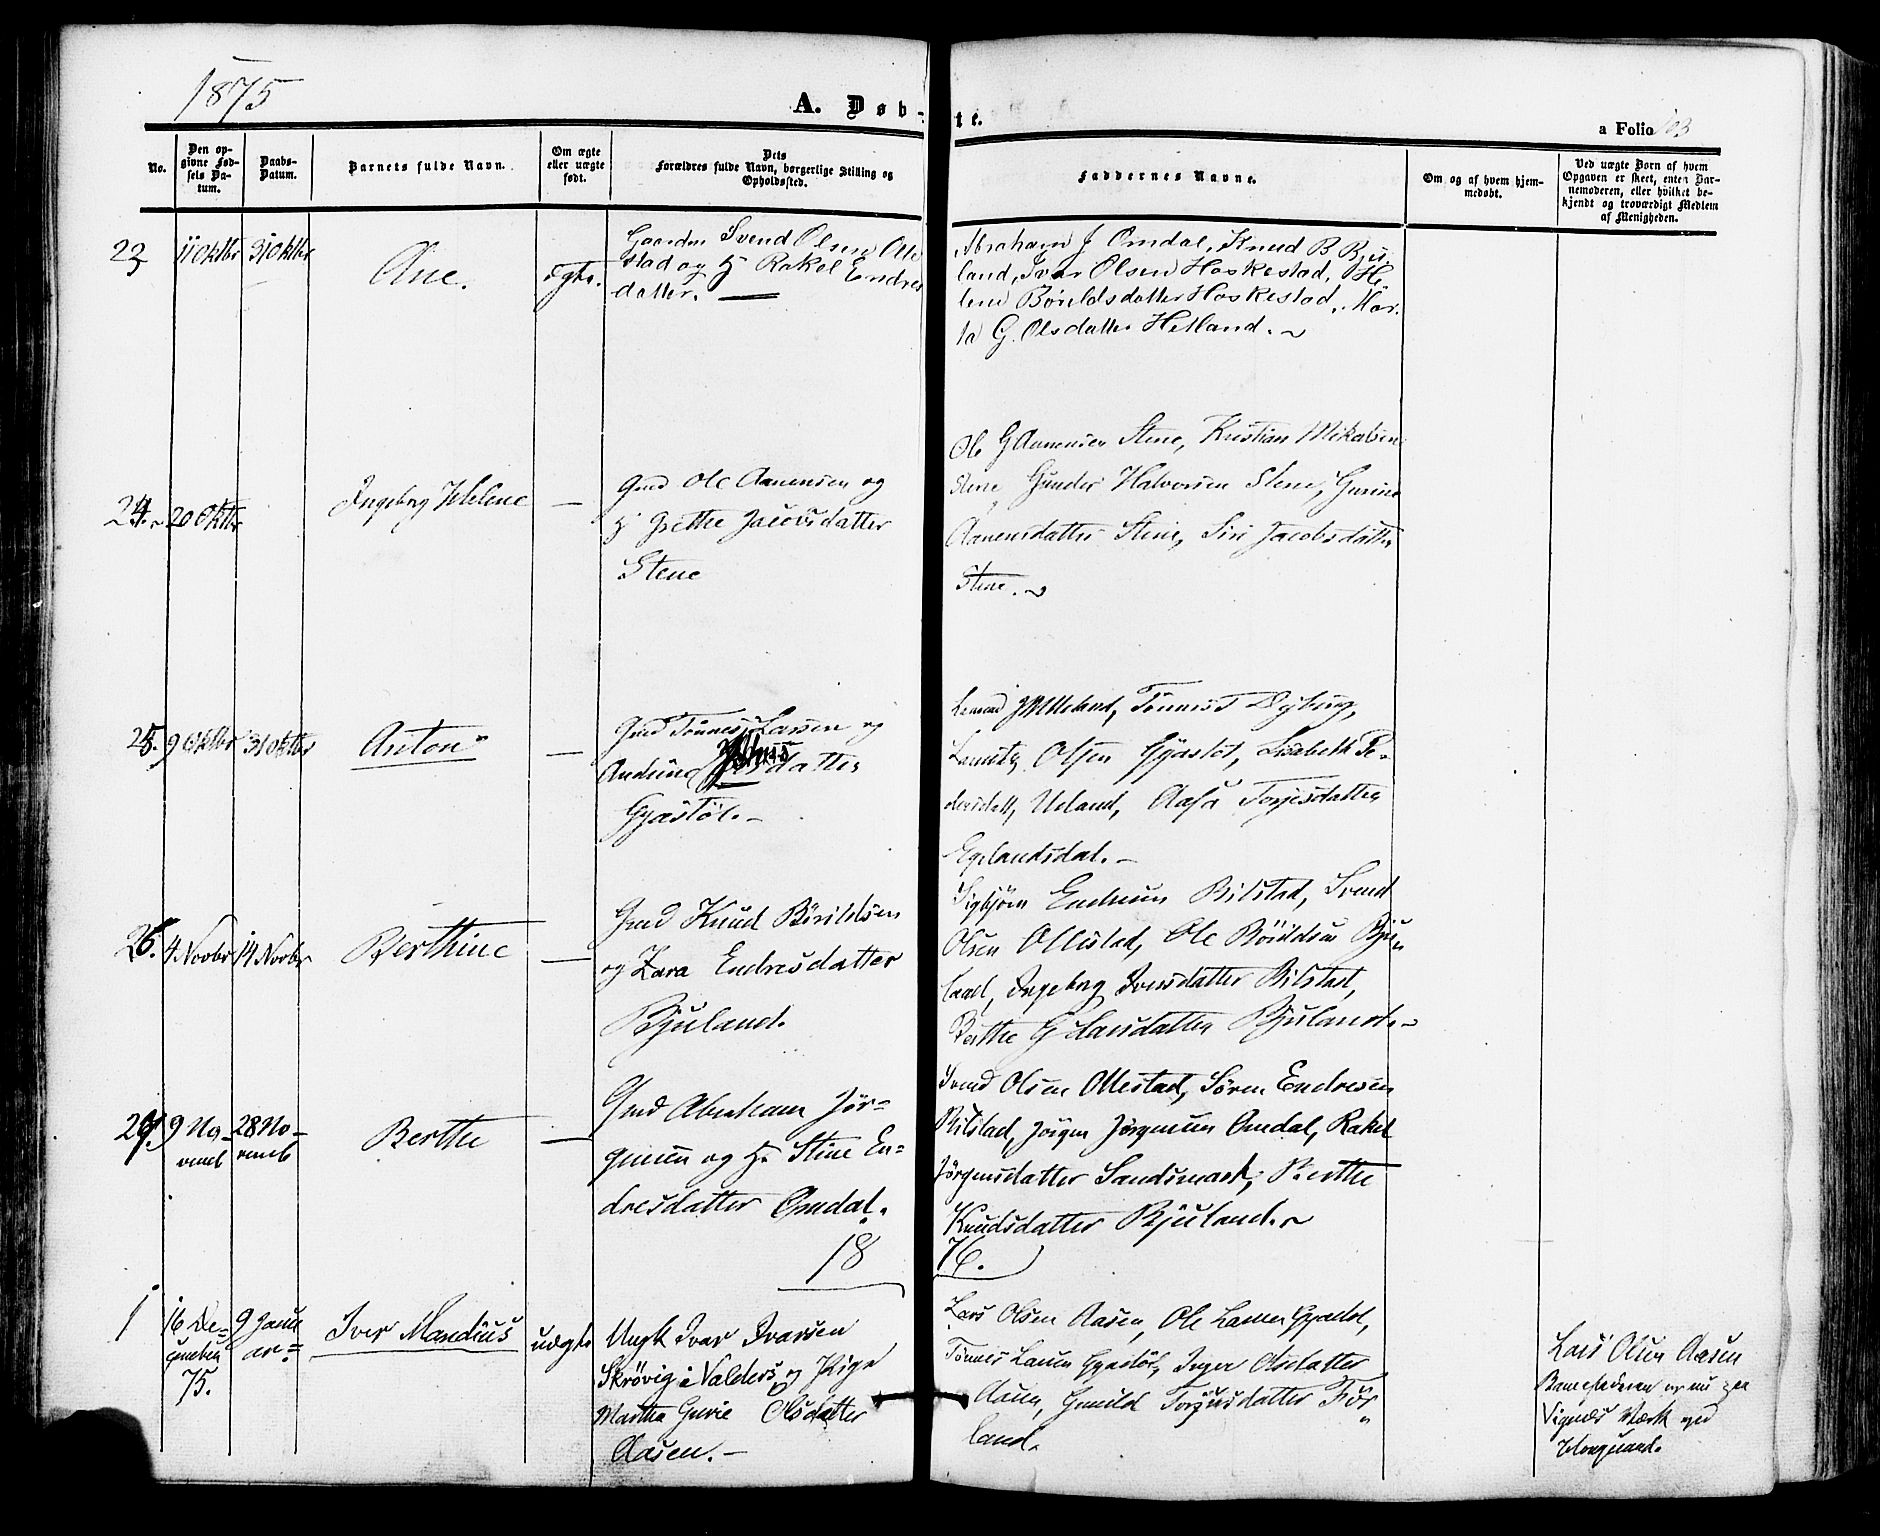 1875
A. Døb-
te.
a Folio 103
No.
Den op-
givne Fød-
sels Da-
tum.
Daabs-
Datum.
Barnets fulde Navn.
Om ægte
eller uægte
født.
Dets
Forældres fulde Navn, borgerlige Stilling og
Opholdssted.
Faddernes Navne.
Om og af hvem hjem-
medøbt.
Ved uægte Børn af hvem
Opgaven er skeet, enten Bar-
nemoderen, eller hvilket be-
kjendt og troværdigt Medlem
af Menigheden.
23
11 Oktbr
31 Oktbr
Ane.
ægte.
Gaardm Svend Olsen Olle
stad og H. Rakel Endres
datter.
Abraham J Omdal, Knud B Bju
land, Ivar Olsen Haskestad, He
lene Børildsdatter Haskestad, Mar
ta G. Olsdatter Hetland.
24.
20 Oktbr
Ingeborg Helene
—
Gmd Ole Aanensen og
H. Grethe Jacobsdatter
Stene
Ole G Aanensen Stene, Kristian Mikalsen
Stene Gunder Halvorsen Stene, Gurine
Aanensdatter Stene, Siri Jacobsdatter
Stene.
25.
9 Oktbr
31 Oktbr
Anton
—
Gmd Tønnes Larsen og
Andrine datter
Gyastøl.
Tønnes T Dybing,
Lauritz Olsen Gyastøl, Lisabeth Pe-
dersdatt, Ueland, Aasa Torjesdatter
Egelandsdal.
26.
4 Novbr
14 Novbr
Berthine
—
Gmd Knud Børildsen
og Zara Endresdatter
Bjuland.
Sigbjørn Endresen Bilstad, Svend
Olsen Ollestad, Ole Børildsen Bju
land, Ingeborg Iversdatter Bilstad,
Berthe G Larsdatter Bjuland.
27.
9 No-
vemb
28 No-
vemb
Berthe
—
Gmd Abraham Jør-
gensen og H. Stine En-
dresdatter Omdal.
18
Svend Olsen Ollestad, Søren Endresen
Bilstad, Jørgen Jørgensen Omdal, Rakel
Jørgensdatter Sandsmark, Berthe
Knudsdatter Bjuland.
76.
1
16 De-
cember
75.
9 Janu
ar
Iver Mandius
uægte
Ungk Ivar Ivarsen
Skrøvig i Valders og Pige
Martha Gurie Olsdatter
Aasen.
Lars Olsen Aasen, Ole Larsen Gyadal,
Tønnes Larsen Gyastøl, Inger Olsdatter
Aasen, Gunild Torjusdatter Før
land.
Lars Olsen Aasen
Barnefaderen er nu paa
Vignæs Værk ved
Haugesund.